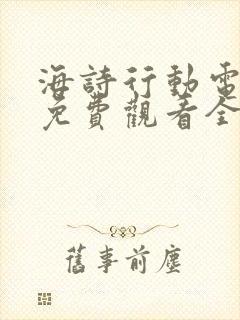 海詩行動電
免費觀看全
舊事前塵